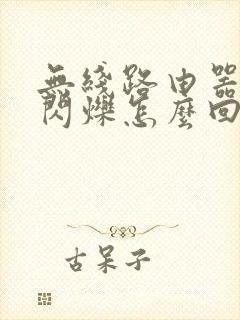 無綫路由器
閃爍怎麼回
古呆子